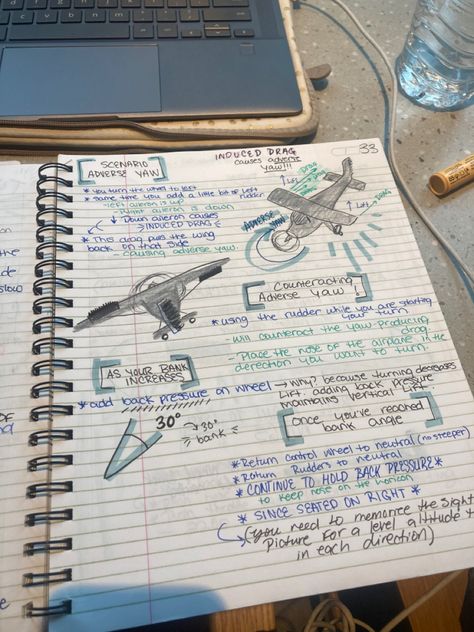 INDUCED DRAG
causes adverse
yaw!!!
33
SCENARIO
ADVERSE YAW
* You turn the wheel to left
* same time you add a little bit of left
rudder
- left aileron is up
- Right aileron is down
↓ Down aileron causes
→ INDUCED DRAG ←
* This drag pulls the wing
back on that side
- causing adverse yaw.
Lift
Drag
ADVERSE
YAW
Lift
Counteracting
Adverse Yaw!
* using the rudder while you are starting
your turn.
- will counteract the yaw-producing
drag.
- Place the nose of the airplane in the
derection you want to turn.
AS YOUR BANK
INCREASES
* add back pressure on wheel → Why? because turning decreases
Lift. adding back pressure
maintains vertical
30°
→ 30°
bank
Once you've reached
bank angle
* Return control wheel to neutral (no steeper)
* Return Rudders to neutral
* CONTINUE TO HOLD BACK PRESSURE *
to keep nose on the horizon
* SINCE SEATED ON RIGHT *
(you need to memorize the sight
Picture For a level altitude +
in each direction)